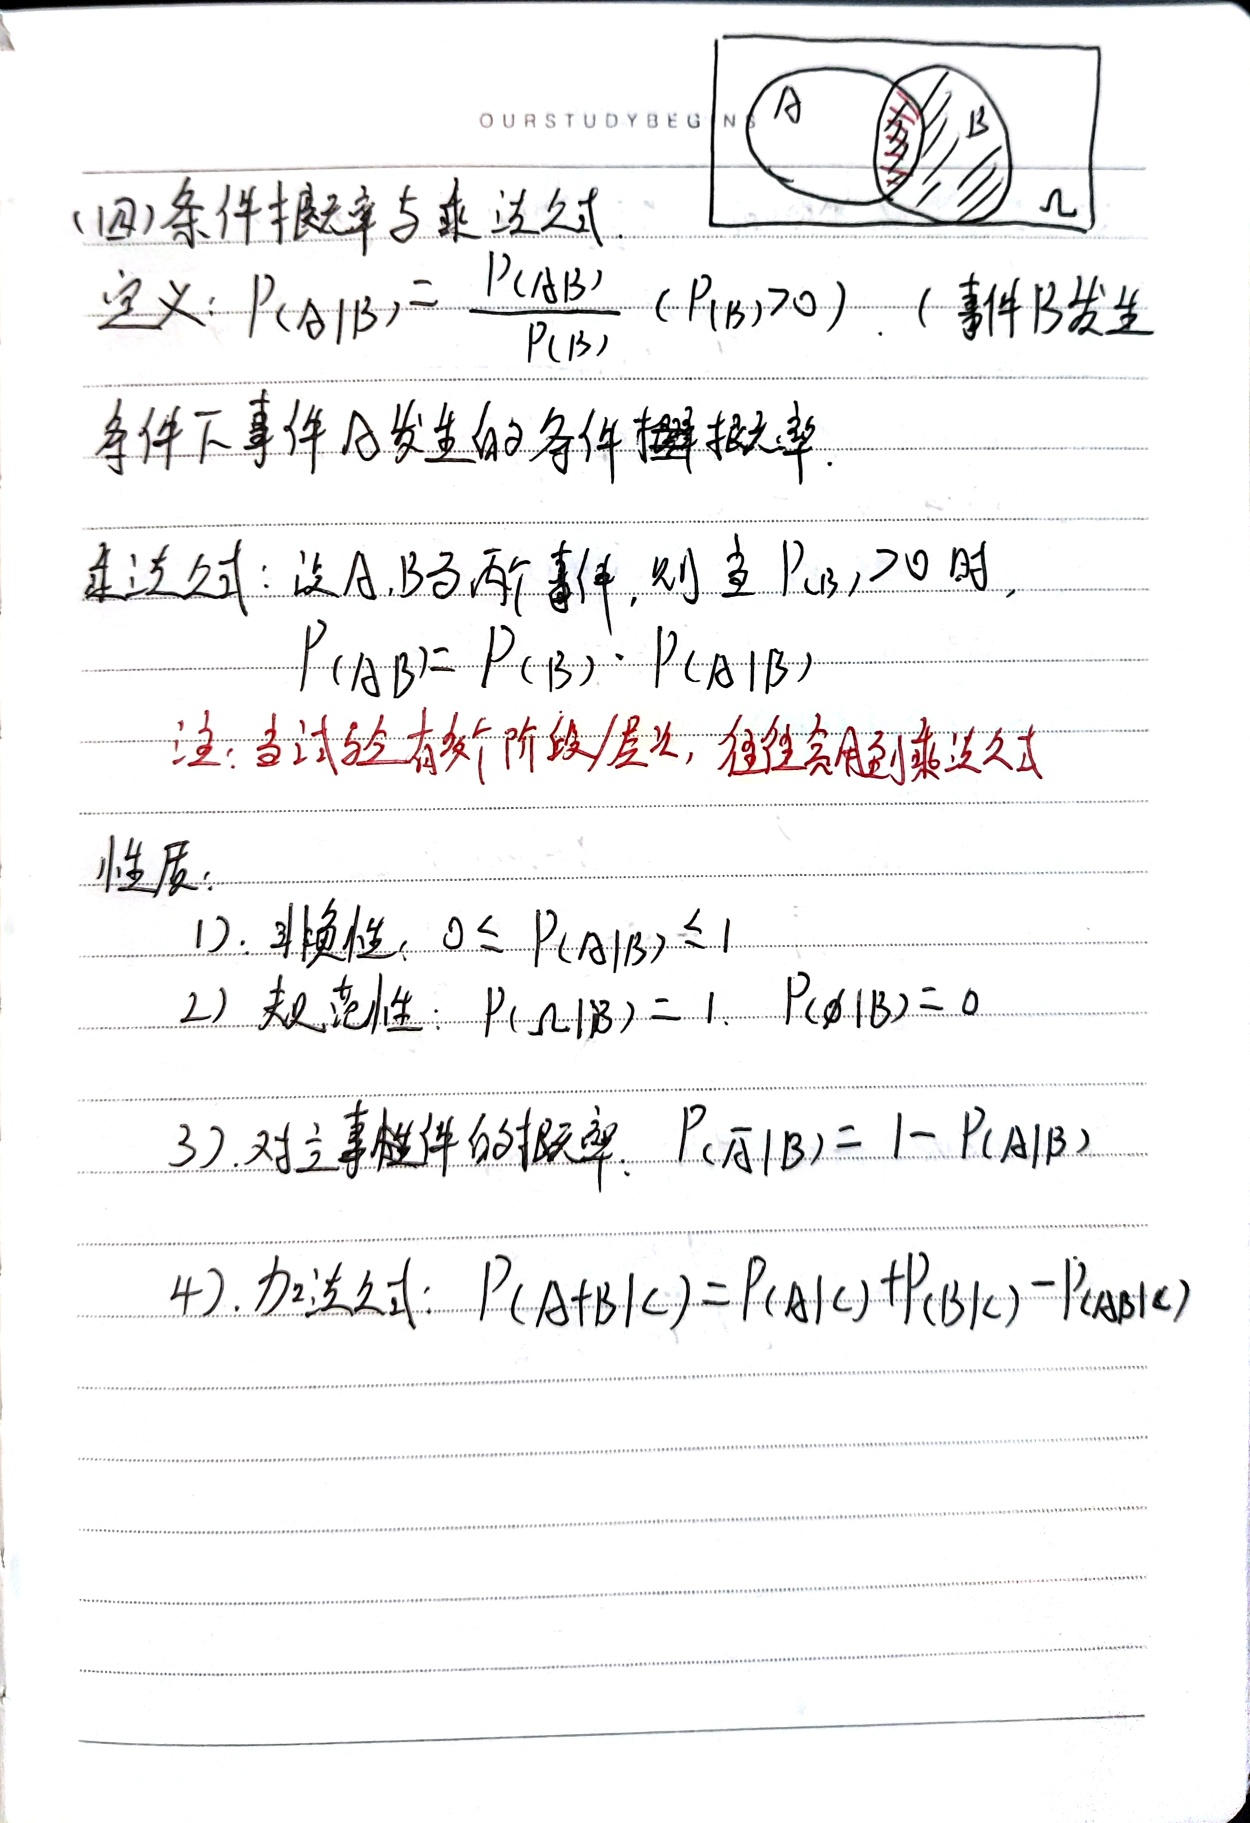 OURSTUDYBEGINS
A B Ω
(四)条件概率与乘法公式.
定义: P(A|B) = P(AB)/P(B) (P(B)>0). (事件B发生
条件下事件A发生的条件概率.
乘法公式: 设A.B为两个事件, 则当 P(B)>0 时,
P(AB) = P(B) · P(A|B)
注: 当试验有多个阶段/层次, 往往会用到乘法公式
性质:
1). 非负性. 0 ≤ P(A|B) ≤ 1
2) 规范性: P(Ω|B) = 1. P(ø|B) = 0
3). 对立事件的概率. P(A̅|B) = 1 - P(A|B)
4). 加法公式: P(A+B|C) = P(A|C) + P(B|C) - P(AB|C)